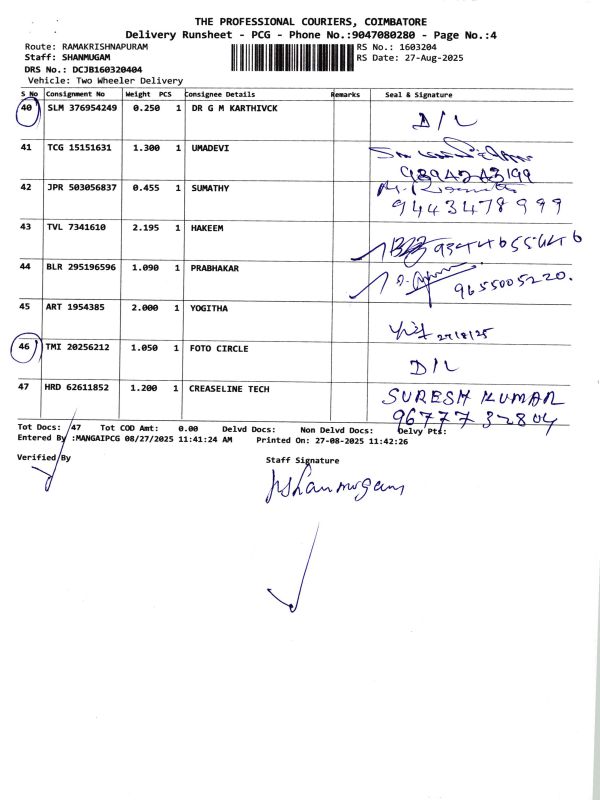 THE PROFESSIONAL COURIERS, COIMBATORE
Delivery Runsheet - PCG - Phone No.:9047080280 - Page No.:4
Route: RAMAKRISHNAPURAM RS No.: 1603204
Staff: SHANMUGAM RS Date: 27-Aug-2025
DRS No.: DCJB160320404
Vehicle: Two Wheeler Delivery
S No Consignment No Weight PCS Consignee Details Remarks Seal & Signature
40 SLM 376954249 0.250 1 DR G M KARTHIVCK D/L
41 TCG 15151631 1.300 1 UMADEVI
9894243199
42 JPR 503056837 0.455 1 SUMATHY
9443478999
43 TVL 7341610 2.195 1 HAKEEM 9344655646
44 BLR 295196596 1.090 1 PRABHAKAR
9655005220.
45 ART 1954385 2.000 1 YOGITHA
27/8/25
46 TMI 20256212 1.050 1 FOTO CIRCLE D/L
47 HRD 62611852 1.200 1 CREASELINE TECH SURESH KUMAR
96777 32804
Tot Docs: 47 Tot COD Amt: 0.00 Delvd Docs: Non Delvd Docs: Delvy Pts:
Entered By :MANGAIPCG 08/27/2025 11:41:24 AM Printed On: 27-08-2025 11:42:26
Verified By Staff Signature
Shanmugam